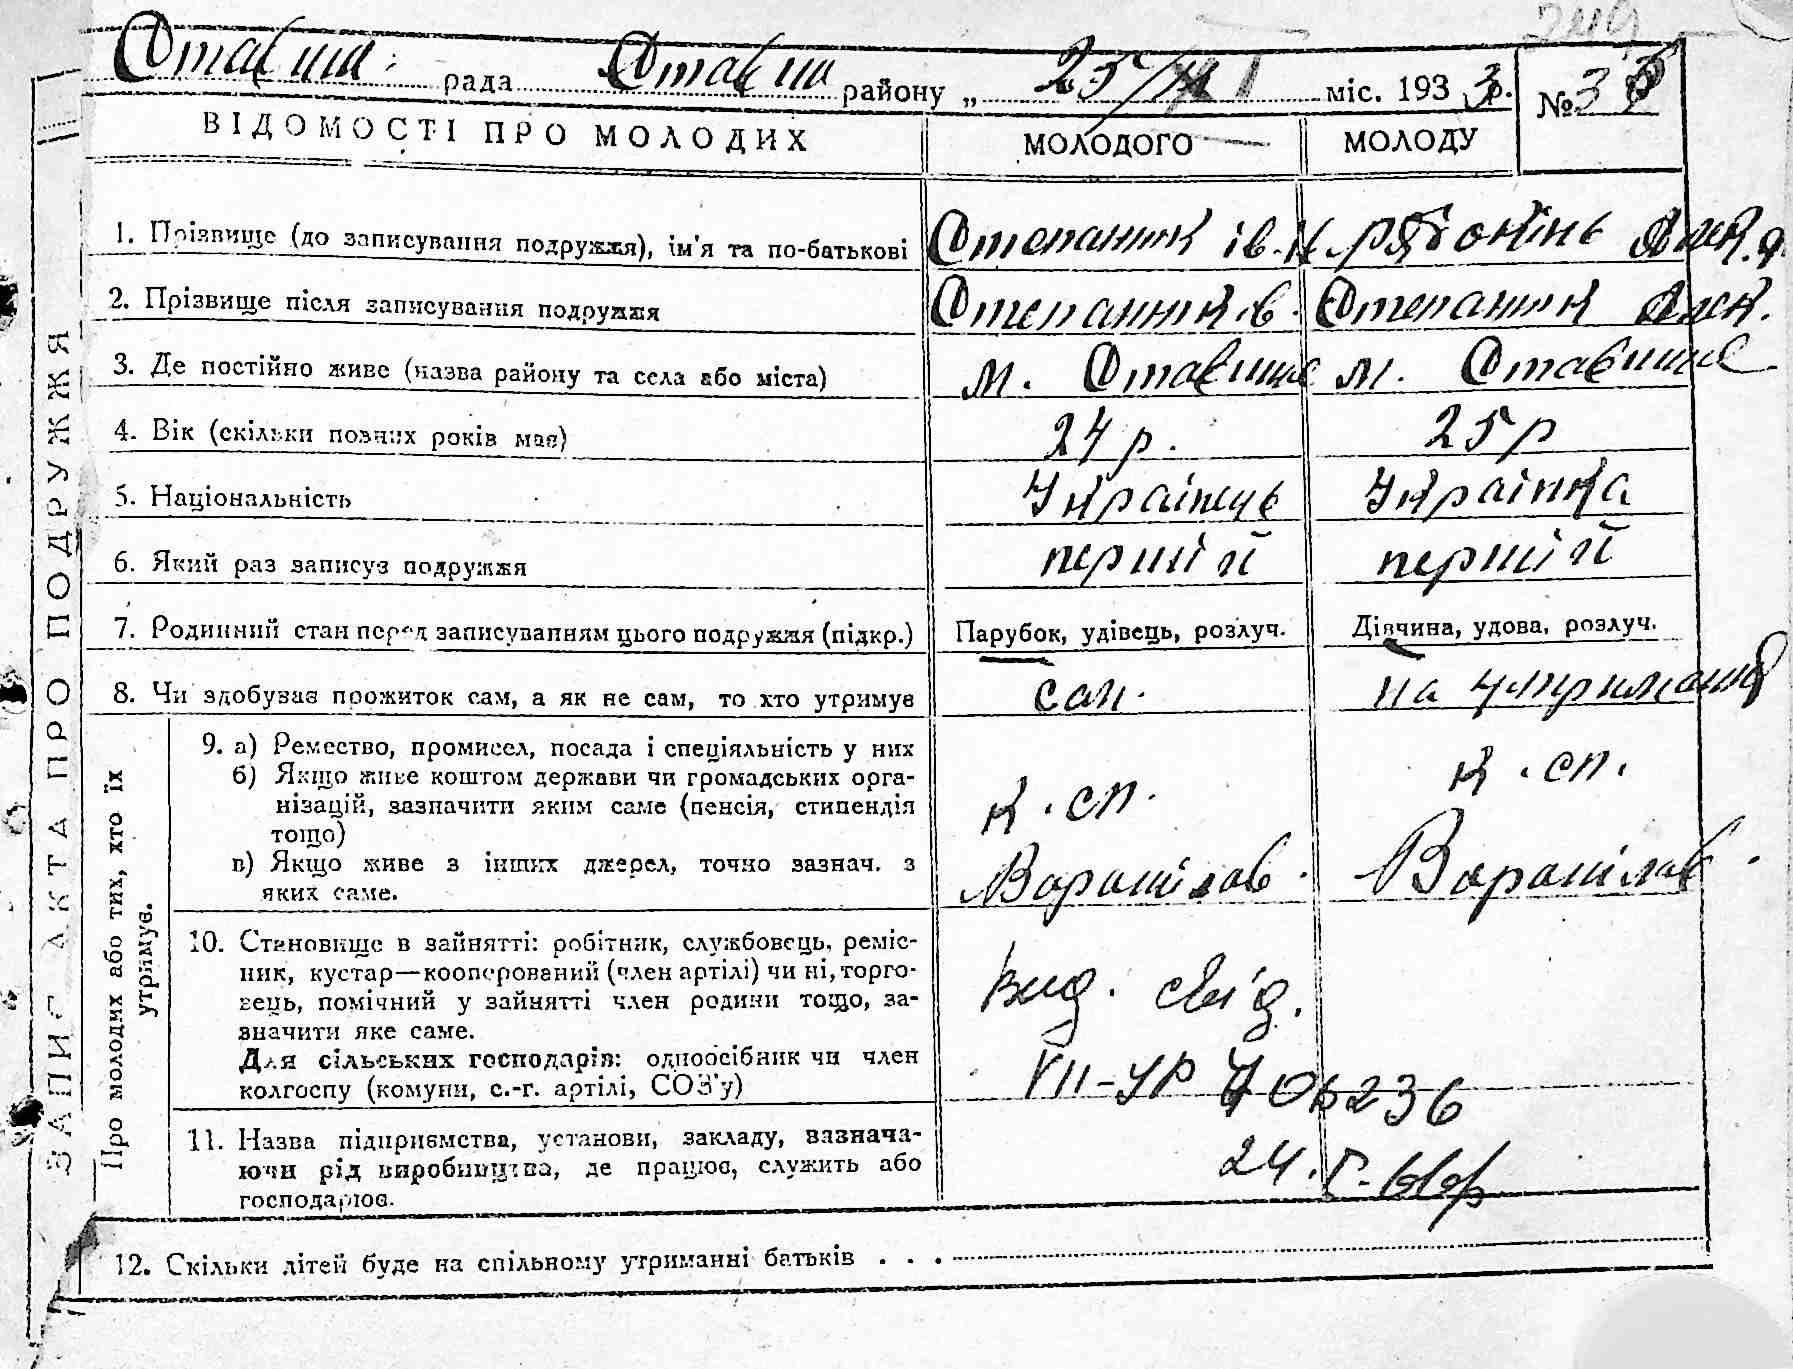 249
Ставищ. рада Ставищ району „ 23/ІІІ міс. 1933 р. № 3
ВІДОМОСТІ ПРО МОЛОДИХ МОЛОДОГО МОЛОДУ
1. Прізвище (до записування подружжя), ім'я та по-батькові Степанюк ів. Олек.
2. Прізвище після записування подружжя Степанюк ів. Степанюк Олек.
3. Де постійно живе (назва району та села або міста) м. Ставище м. Ставище
4. Вік (скільки повних років має) 24 р. 25 р
5. Національність Українець Українка
6. Який раз записує подружжя перший перший
7. Родинний стан перед записуванням цього подружжя (підкр.) Парубок, удівець, розлуч. Дівчина, удова, розлуч.
8. Чи здобував прожиток сам, а як не сам, то хто утримує сам. на утриманні
9. а) Ремество, промисел, посада і спеціяльність у них
б) Якщо живе коштом держави чи громадських орга-
нізацій, зазначити яким саме (пенсія, стипендія к. сп. к. сп.
тощо)
в) Якщо живе з інших джерел, точно зазнач. з Ворошилов. Ворошілов.
яких саме.
10. Становище в зайнятті: робітник, службовець, реміс-
ник, кустар—кооперований (член артілі) чи ні, торго-
вець, помічний у зайнятті член родини тощо, за- вид. свід.
значити яке саме.
Для сільських господарів: одноосібник чи член
колгоспу (комуни, с.-г. артілі, СОЗ'у) VII-УР
11. Назва підприємства, установи, закладу, вазнача-
ючи рід виробництва, де працює, служить або 24.
господарює.
12. Скільки дітей буде на спільному утриманні батьків . . .
ЗАПИС АКТА ПРО ПОДРУЖЖЯ
Про молодих або тих, хто їх
утримує.